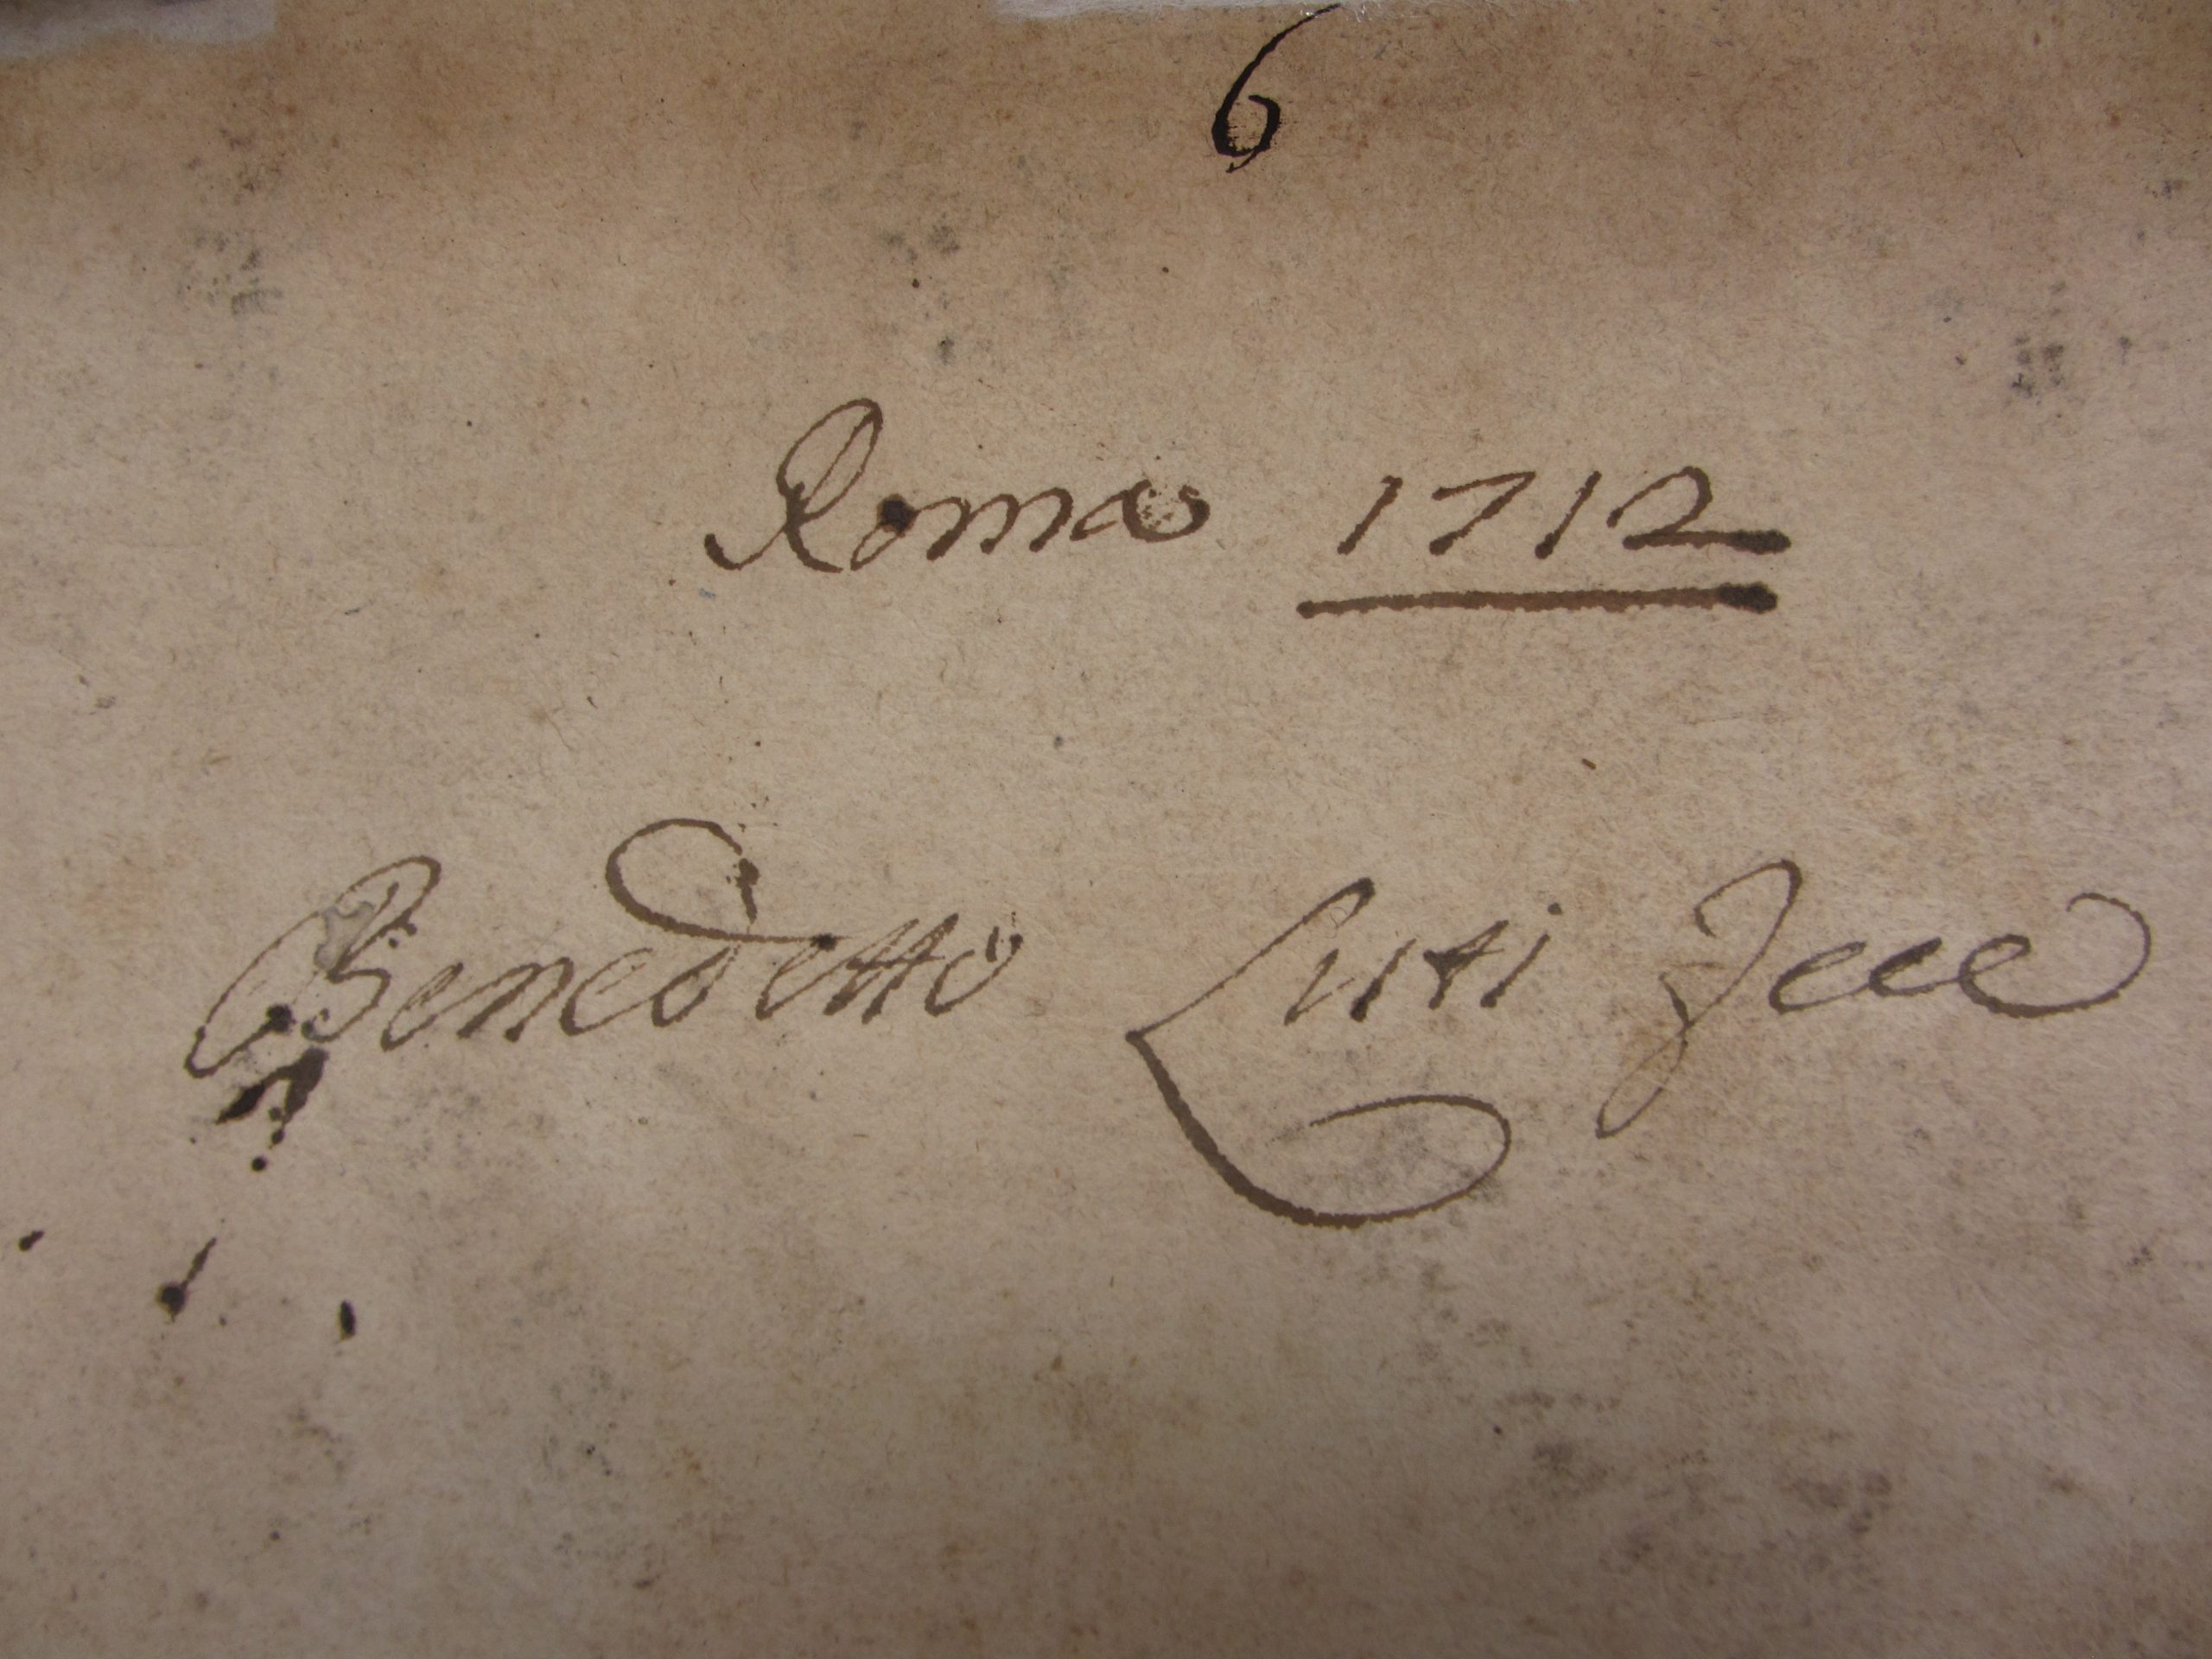 6
Roma 1712
Benedetto Luti fece